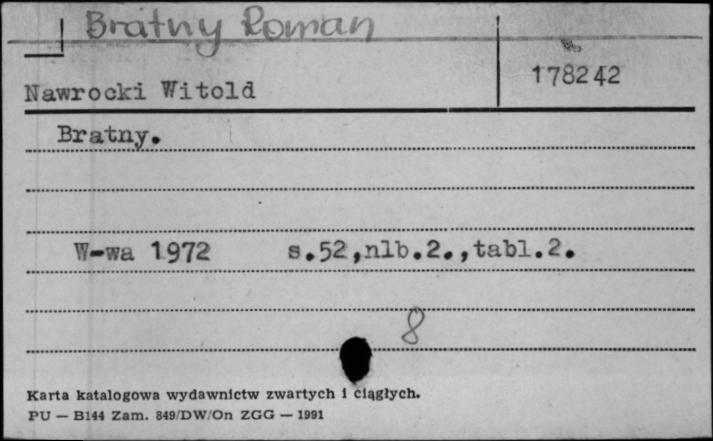 Bratny Roman
178242
Nawrocki Witold
Bratny.
W-wa 1972 s.52,nlb.2.,tabl.2.
8
Karta katalogowa wydawnictw zwartych i ciągłych.
PU — B144 Zam. 849/DW/On ZGG — 1991